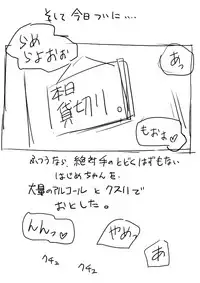 そして今日ついに….
らめ
らよおお
あっ
本日
貸切り。
もおぉ♡
ふつうなら、絶対手のとどくはずもない
はじめちゃんを、
大量のアルコールとクスリで
おとした。
んんっ♡
やめっ
あ
クチュ
クチュ